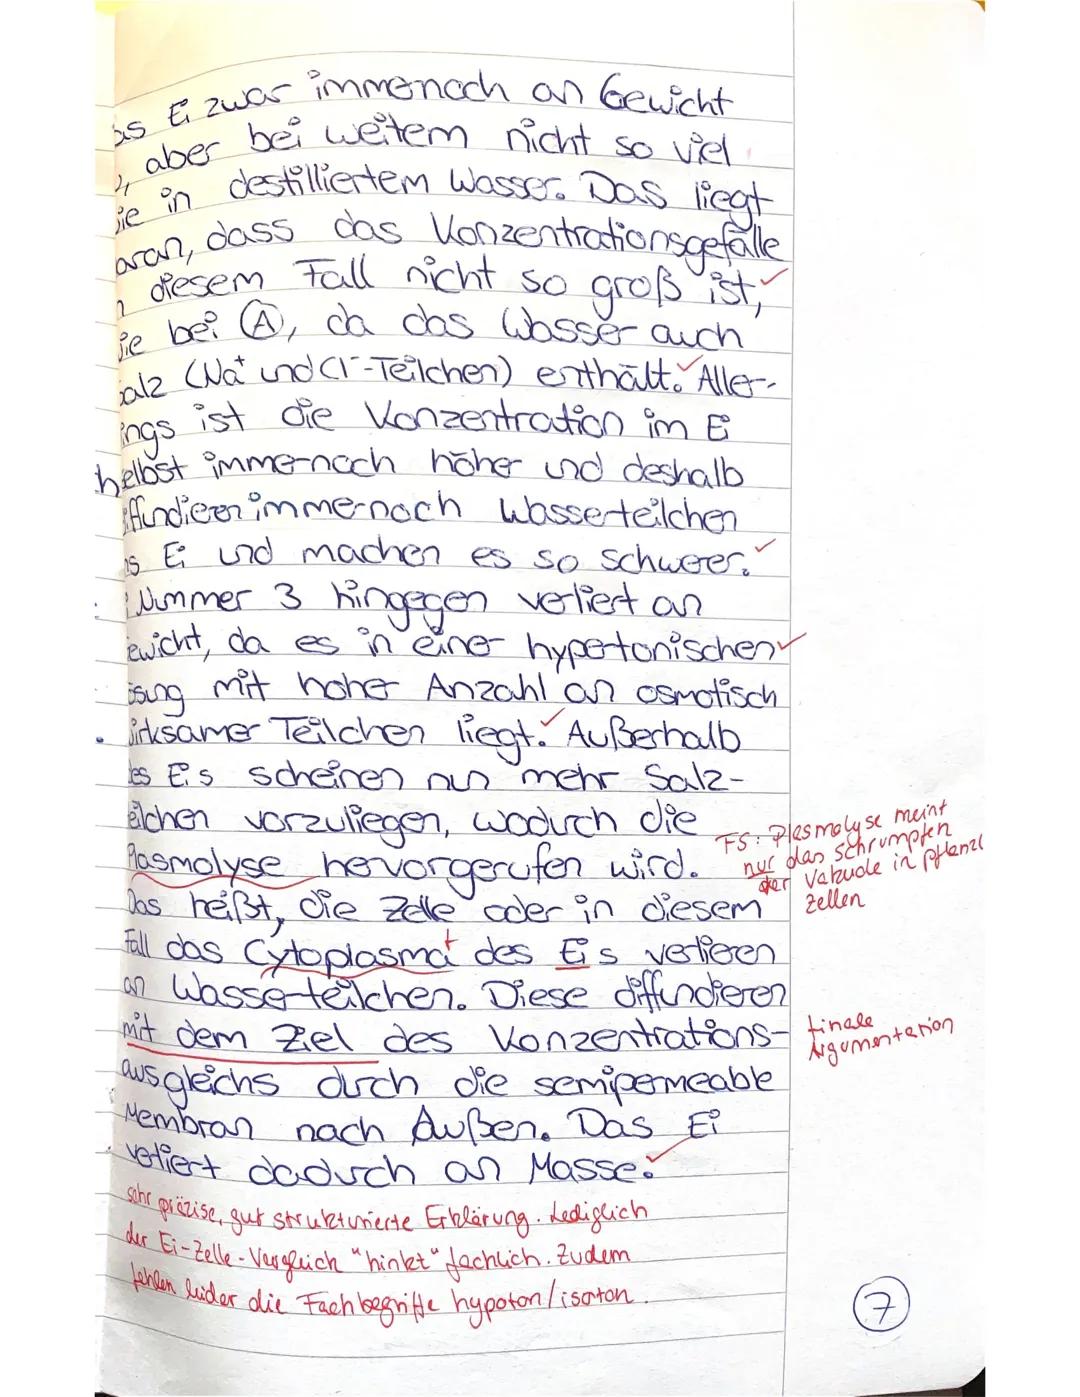 as Ei zwar immernoch an Gewicht
, aber bei weitem nicht so viel
ie in destilliertem Wasser. Das liegt
aran, dass das Konzentrationsgefälle
n diesem Fall nicht so groß ist,
ie bei Ⓐ, da das Wasser auch
alz (Na⁺ und Cl⁻-Teilchen) enthält. Aller-
ings ist die Konzentration im Ei
selbst immernoch höher und deshalb
iffundieren immernoch Wasserteilchen
ns Ei und machen es so schwerer.
i Nummer 3 hingegen verliert an
ewicht, da es in einer hypertonischen
ösung mit hoher Anzahl an osmotisch
wirksamer Teilchen liegt. Außerhalb
des Eis scheinen nun mehr Salz-
eilchen vorzuliegen, wodurch die
Plasmolyse hervorgerufen wird.
FS: Plasmolyse meint
nur das Schrumpfen
der Vakuole in pflanzl
Zellen
Das heißt, die Zelle oder in diesem
Fall das Cytoplasma des Eis verlieren
an Wasserteilchen. Diese diffundieren
mit dem Ziel des Konzentrations-
finale
Argumentation
ausgleichs durch die semipermeable
Membran nach Außen. Das Ei
verliert dadurch an Masse.
sehr präzise, gut strukturierte Erklärung. Lediglich
der Ei-Zelle-Vergleich "hinkt" fachlich. Zudem
fehlen leider die Fachbegriffe hypoton/isoton.
7